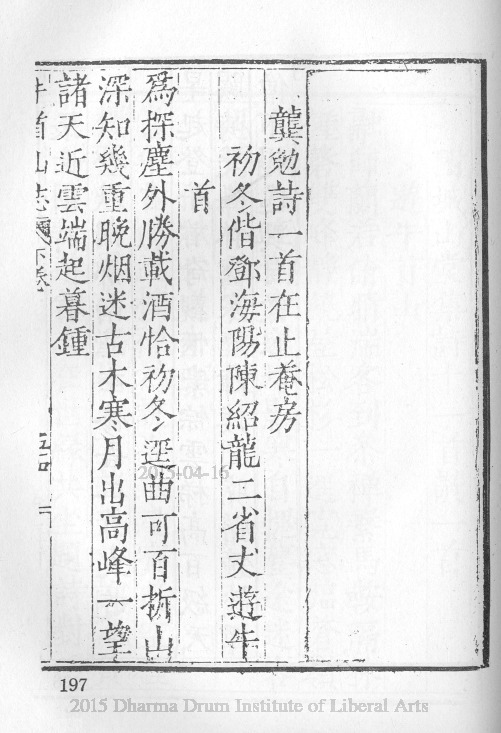 龔勉詩一首在止菴房
初冬偕鄧海陽陳紹龍二省丈遊牛
首
為探塵外勝載酒恰初冬逕曲可百折山
深知幾重晚烟迷古木寒月出高峰一望
諸天近雲端起暮鍾
牛首山志 下卷
2015-04-16
197
2015 Dharma Drum Institute of Liberal Arts